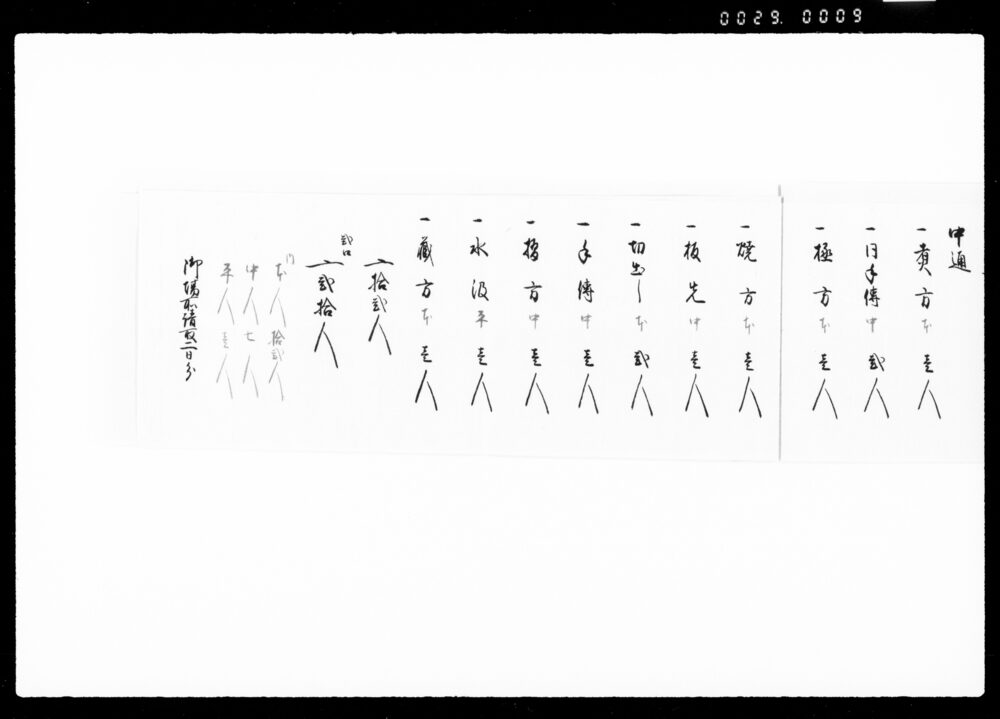 0029. 0009
中通
一 煮方 本 壱人
一 同手傳 中 弐人
一 極方 本 壱人
一 焼方 本 壱人
一 板先 中 壱人
一 切出し 本 弐人
一 手傳 中 壱人
一 方 中 壱人
一 水汲 平 壱人
一 蔵方 本 壱人
〆 拾弐人
弐口
〆 弐拾人
内
本人 拾弐人
中人 七人
平人 壱人
御場所請取二日分